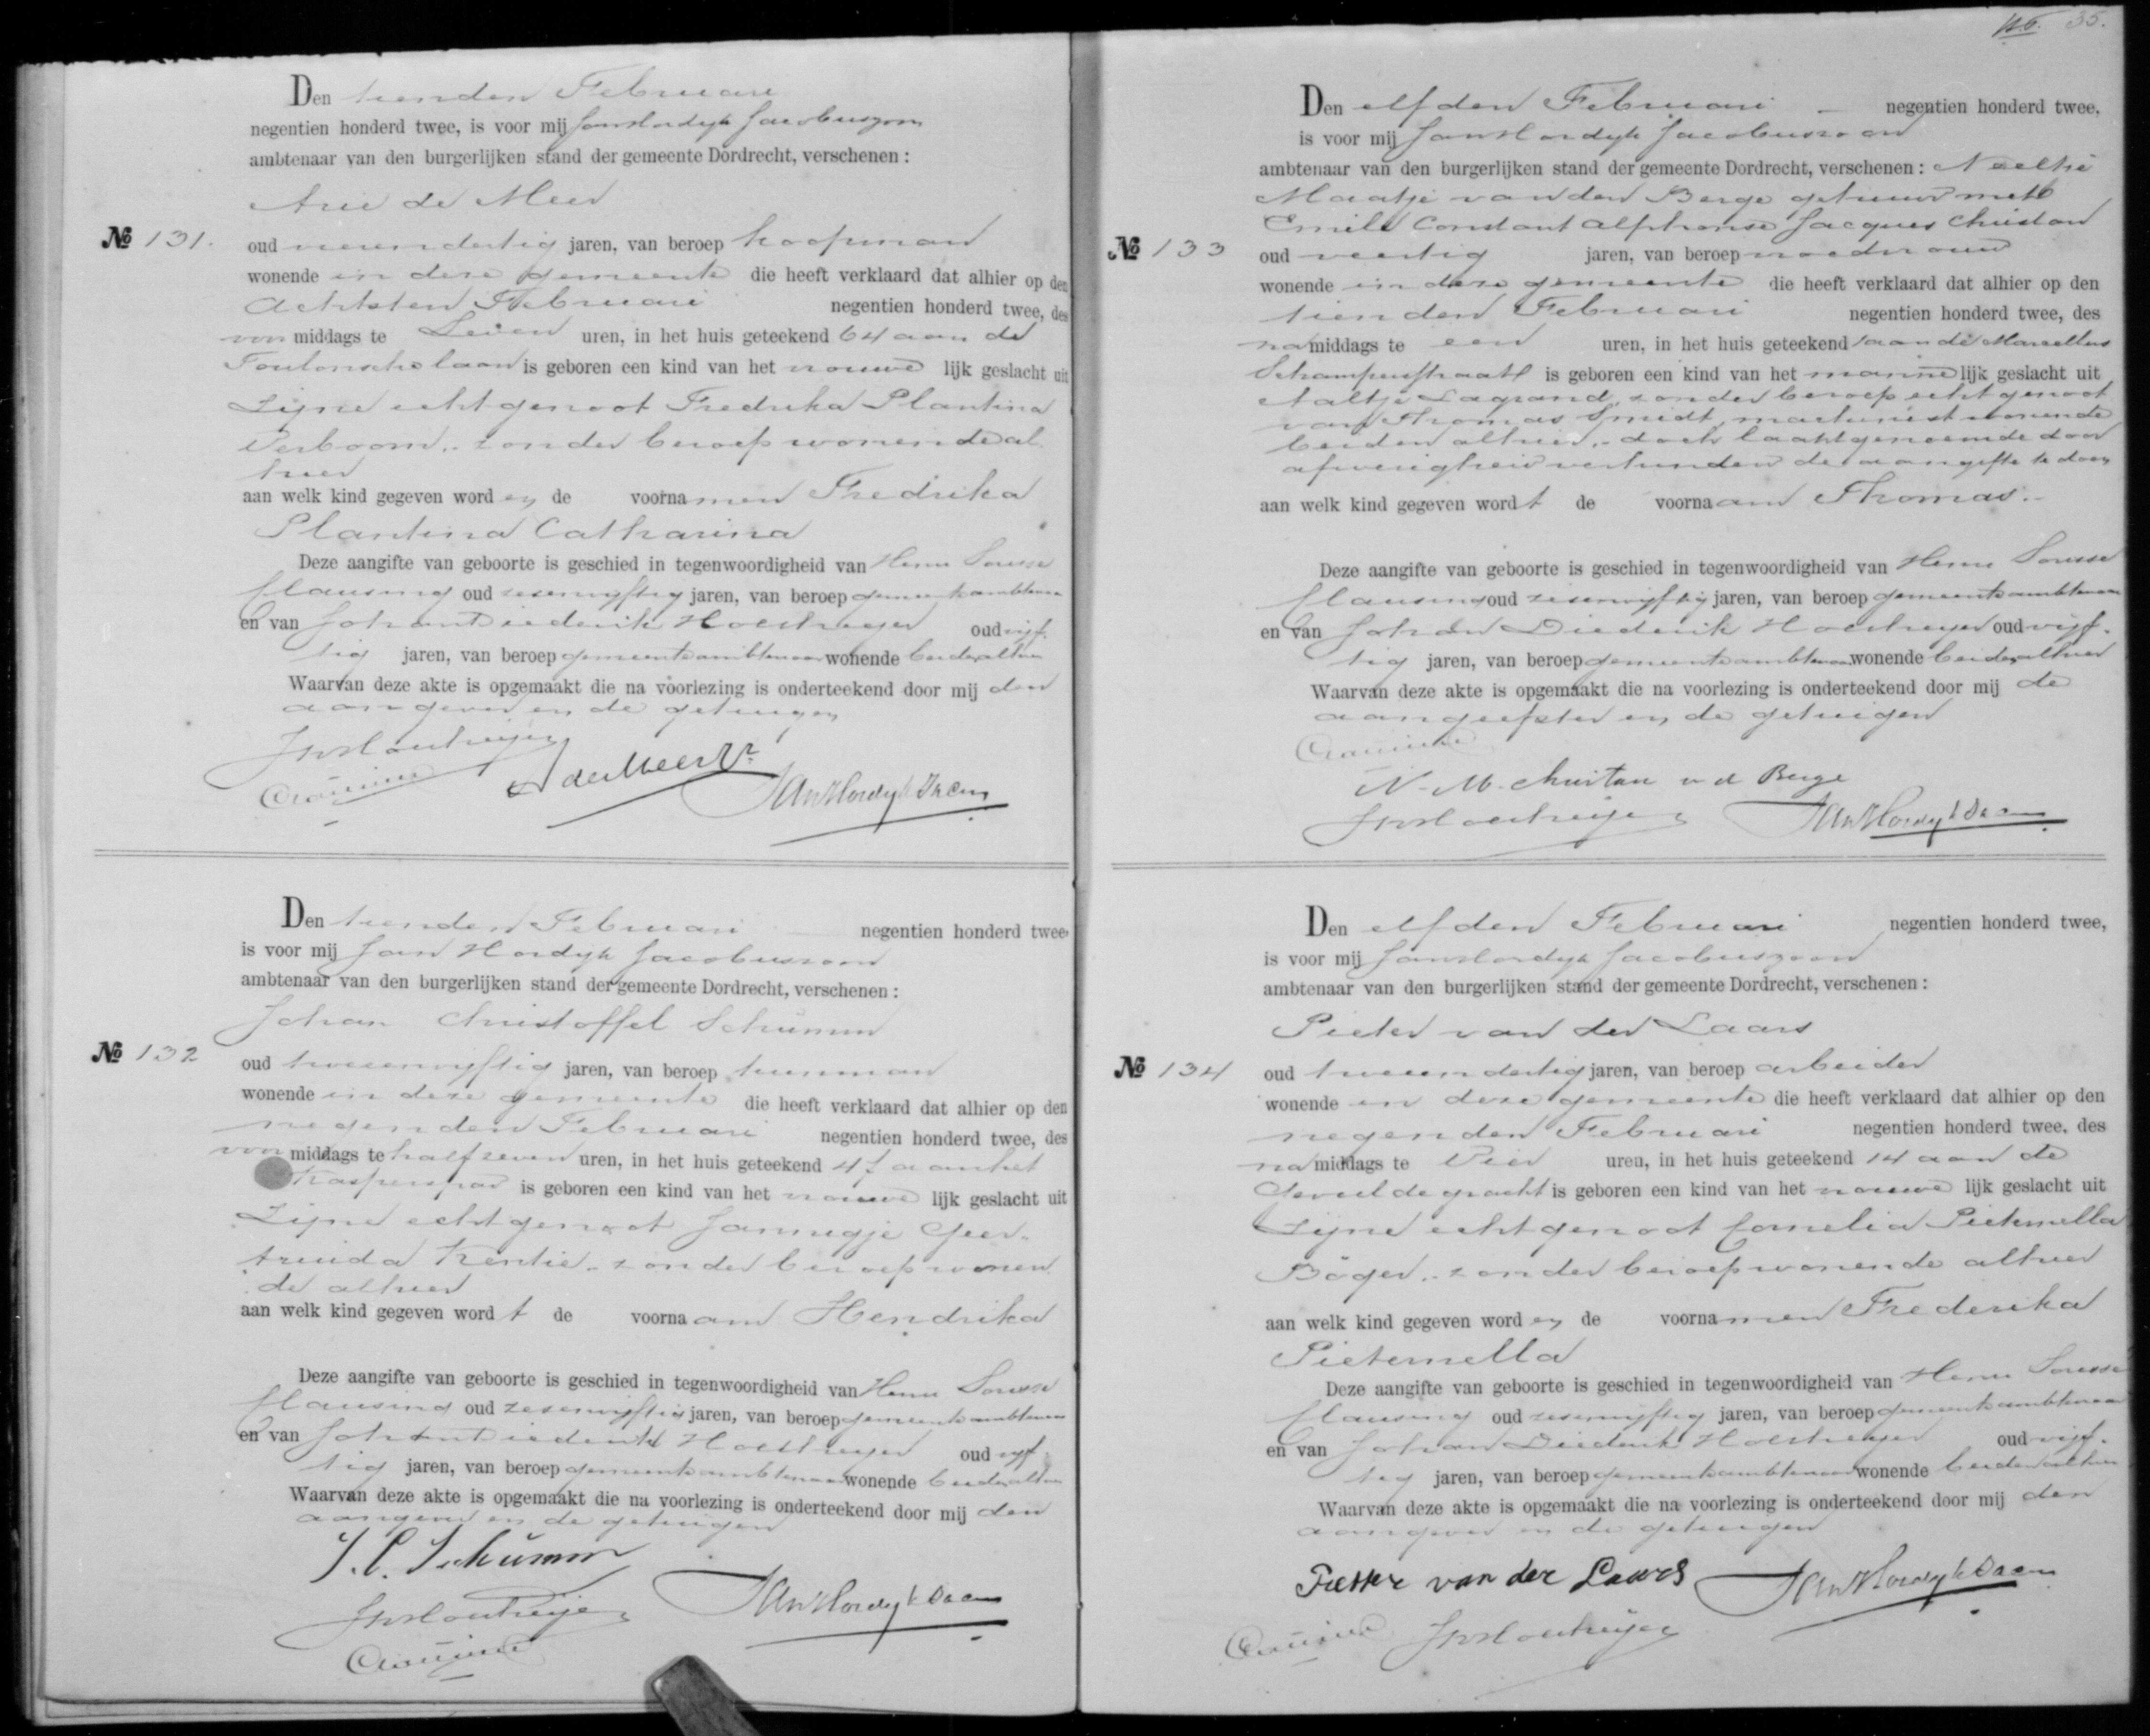 Den tienden Februari
negentien honderd twee, is voor mij Jan Hordijk Jacobuszoon
ambtenaar van den burgerlijken stand der gemeente Dordrecht, verschenen:
Arie de Meer
No 131.
oud negenendertig jaren, van beroep koopman
wonende in deze gemeente die heeft verklaard dat alhier op den
Achtsten Februari negentien honderd twee, des
voor middags te Zeven uren, in het huis geteekend 64 aan de
Toulonschelaan is geboren een kind van het vrouwe lijk geslacht uit
Zijne echtgenoot Fredrika Plantina
Verboom, zonder beroep wonende al
hier
aan welk kind gegeven word en de voorna men Fredrika
Plantina Catharina
Deze aangifte van geboorte is geschied in tegenwoordigheid van Herm
Clausing oud zesenvijftig jaren, van beroep gemeenteambtenaar
en van Johan Diederik oud vijf-
tig jaren, van beroep gemeenteambtenaar wonende beiden alhier
Waarvan deze akte is opgemaakt die na voorlezing is onderteekend door mij den
aangever en de getuigen
A de Meer
Jan Hordijk Jac zn
Den tienden Februari negentien honderd twee,
is voor mij Jan Hordijk Jacobuszoon
ambtenaar van den burgerlijken stand der gemeente Dordrecht, verschenen:
Johan Christoffel Schumm
No 132
oud tweeenvijftig jaren, van beroep tuinman
wonende in deze gemeente die heeft verklaard dat alhier op den
negenden Februari negentien honderd twee, des
voor middags te half zeven uren, in het huis geteekend 47 aan het
Kasperspad is geboren een kind van het vrouwe lijk geslacht uit
Zijne echtgenoot Jannigje Geer-
truida Kentie, zonder beroep wonen
de alhier
aan welk kind gegeven word t de voorna am Hendrika
Deze aangifte van geboorte is geschied in tegenwoordigheid van Herm
Clausing oud zesenvijftig jaren, van beroep gemeenteambtenaar
en van Johan Diederik oud vijf-
tig jaren, van beroep gemeenteambtenaar wonende beiden alhier
Waarvan deze akte is opgemaakt die na voorlezing is onderteekend door mij den
aangever en de getuigen
J. C. Schumm
Jan Hordijk Jac zn
35.
Den elfden Februari negentien honderd twee,
is voor mij Jan Hordijk Jacobuszoon
ambtenaar van den burgerlijken stand der gemeente Dordrecht, verschenen: Neeltje
Maatje van den Berge gehuwd met
Emile Constant Alphonse Jacques Christan
No 133
oud veertig jaren, van beroep vroedvrouw
wonende in deze gemeente die heeft verklaard dat alhier op den
tienden Februari negentien honderd twee, des
na middags te een uren, in het huis geteekend aan de Marcellus
Schampersstraat is geboren een kind van het manne lijk geslacht uit
Aaltje Lagrand, zonder beroep echtgenoot
van Thomas Smidt, machinist wonende
beiden alhier, doch laatstgenoemde door
afwezigheid verhinderd de aangifte te doen
aan welk kind gegeven word t de voorna am Thomas.
Deze aangifte van geboorte is geschied in tegenwoordigheid van Herm
Clausing oud zesenvijftig jaren, van beroep gemeenteambtenaar
en van Johan Diederik oud vijf-
tig jaren, van beroep gemeenteambtenaar wonende beiden alhier
Waarvan deze akte is opgemaakt die na voorlezing is onderteekend door mij de
aangeefster en de getuigen
N. M. Christan v d Berge
Jan Hordijk Jac zn
Den elfden Februari negentien honderd twee,
is voor mij Jan Hordijk Jacobuszoon
ambtenaar van den burgerlijken stand der gemeente Dordrecht, verschenen:
Pieter van der Laars
No 134
oud tweeendertig jaren, van beroep arbeider
wonende in deze gemeente die heeft verklaard dat alhier op den
negenden Februari negentien honderd twee, des
na middags te Vier uren, in het huis geteekend 14 aan de
Gevuldegracht is geboren een kind van het vrouwe lijk geslacht uit
Zijne echtgenoot Cornelia Pieternella
Böger, zonder beroep wonende alhier
aan welk kind gegeven word en de voorna men Frederika
Pieternella
Deze aangifte van geboorte is geschied in tegenwoordigheid van Herm
Clausing oud zesenvijftig jaren, van beroep gemeenteambtenaar
en van Johan Diederik oud vijf-
tig jaren, van beroep gemeenteambtenaar wonende beiden alhier
Waarvan deze akte is opgemaakt die na voorlezing is onderteekend door mij den
aangever en de getuigen
Pieter van der Laars
Jan Hordijk Jac zn